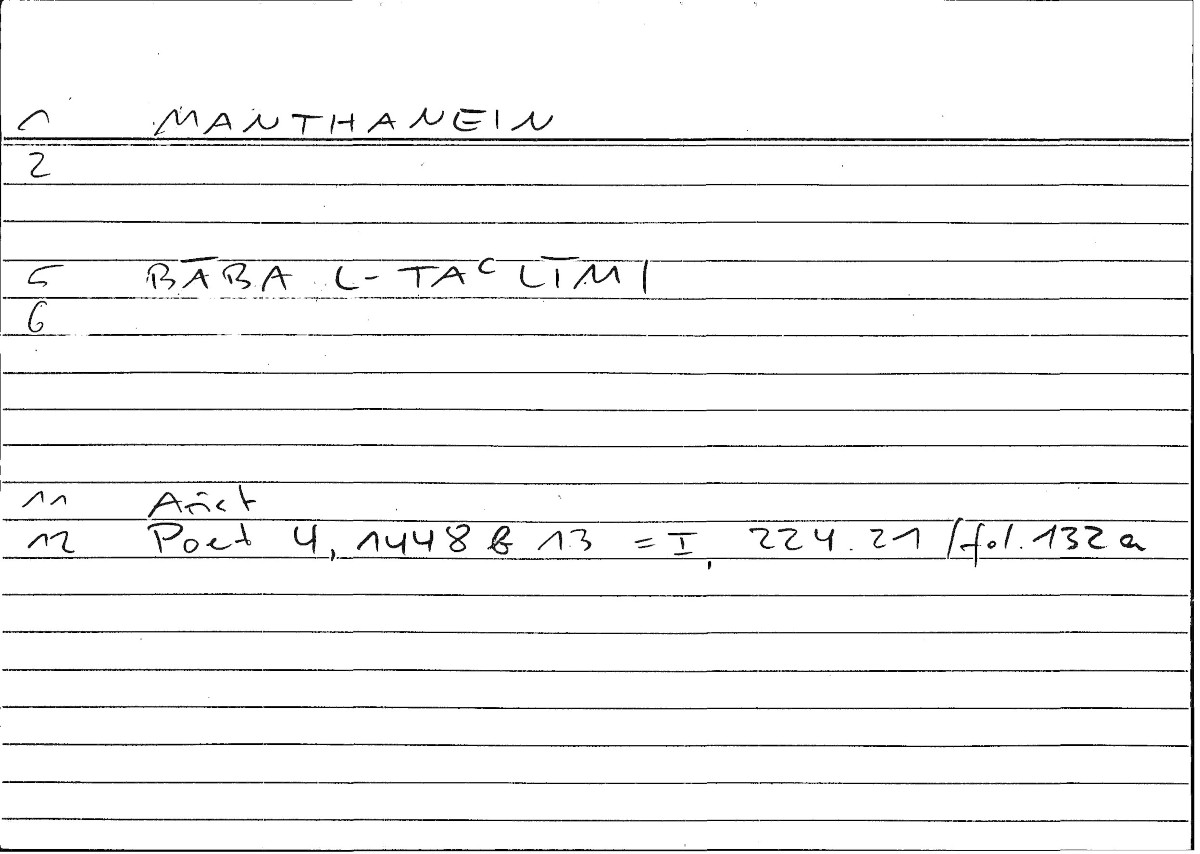 1 MANTHANEIN
2
5 BĀBA L-TAᶜLĪMI
6
11 Arist
12 Poet 4, 1448 b 13 = I, 224.21 / fol. 132a